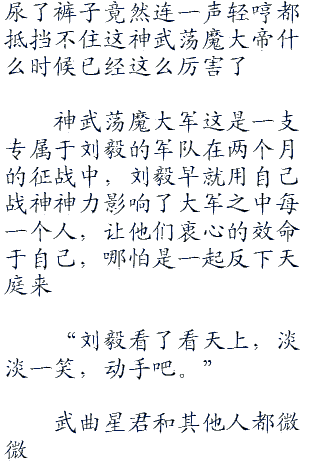 尿了裤子竟然连一声轻哼都
抵挡不住这神武荡魔大帝什
么时候已经这么厉害了
神武荡魔大军这是一支
专属于刘毅的军队在两个月
的征战中，刘毅早就用自己
战神神力影响了大军之中每
一个人，让他们衷心的效命
于自己，哪怕是一起反下天
庭来
“刘毅看了看天上，淡
淡一笑，动手吧。”
武曲星君和其他人都微
微